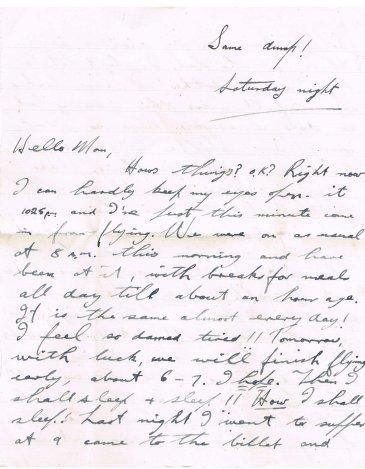 Same dump!
Saturday night
Hello Mom,
Hows things? O.K? Right now
I can hardly keep my eyes open. it
1025pm and I've just this minute come
in from flying. We were on as usual
at 8 a.m. this morning and have
been at it, with breaks for meals
all day till about an hour ago.
It is the same almost every day!
I feel so darned tired!! Tomorrow,
with luck, we will finish flying
early, about 6-7. I hope. Then I
shall sleep + sleep!! How I shall
sleep! Last night I went to supper
at 9 came to the billet and